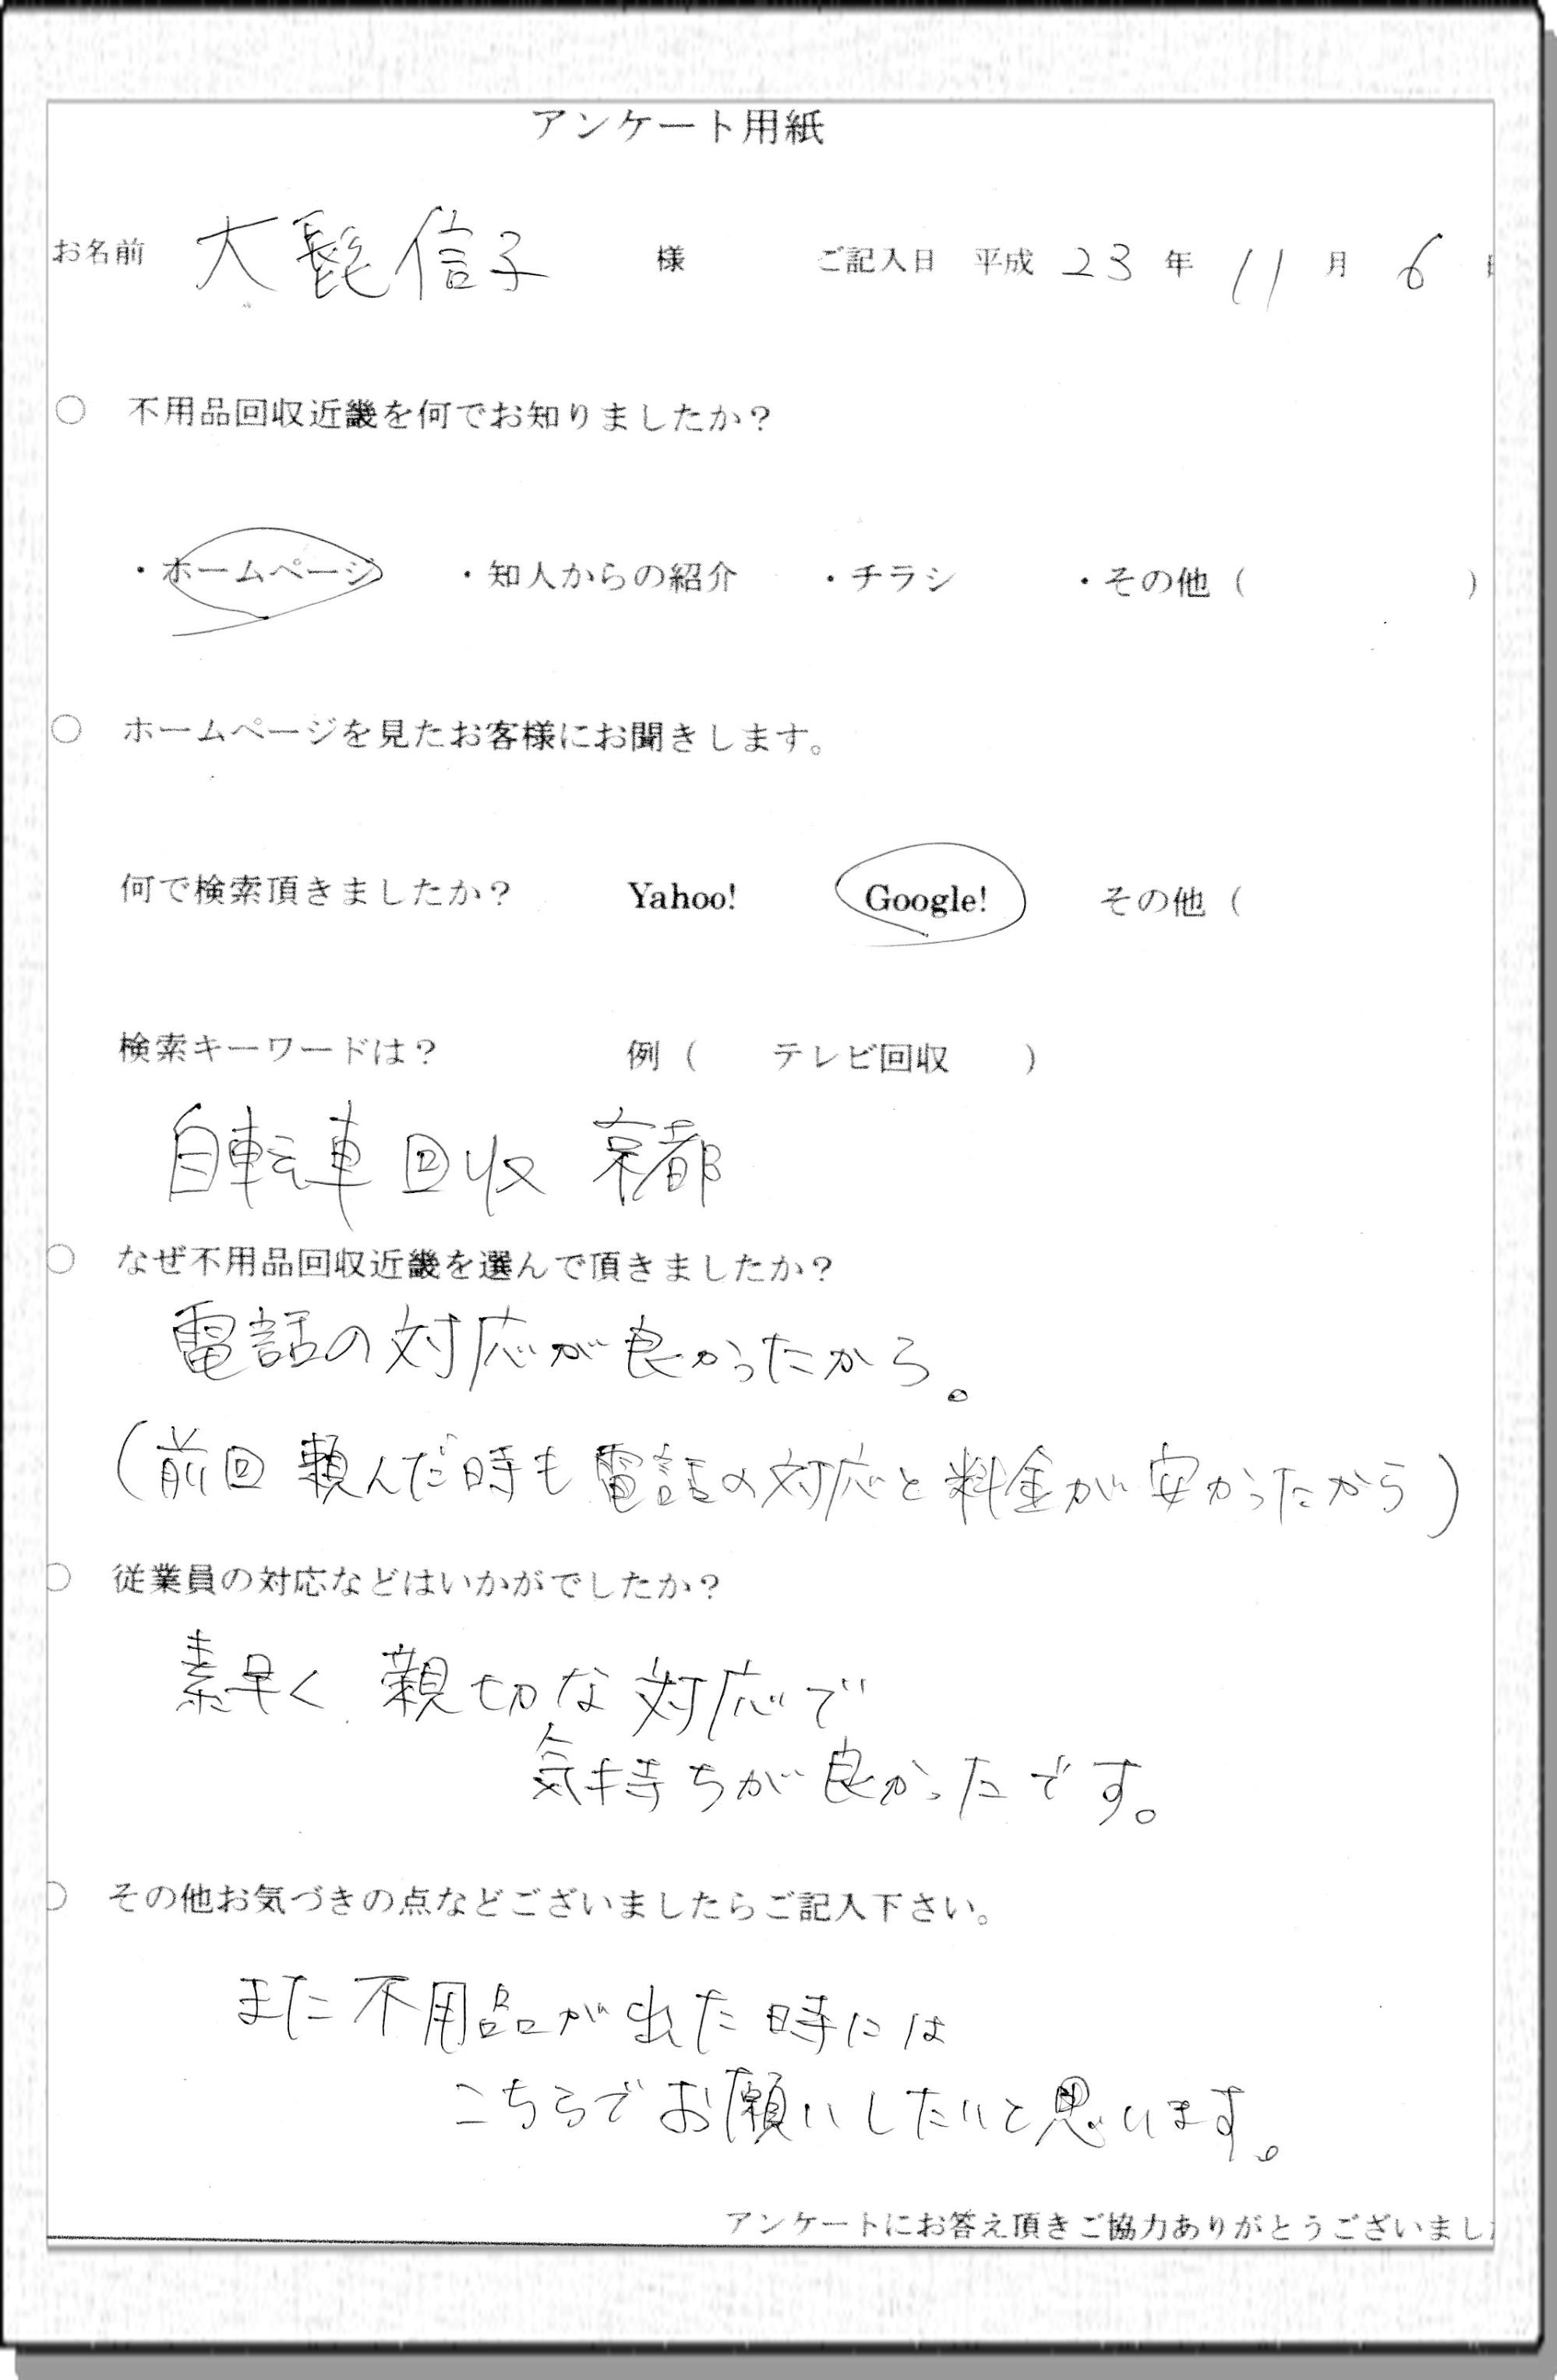 アンケート用紙
お名前 大髭信子 様 ご記入日 平成 23 年 11 月 6
○ 不用品回収近畿を何でお知りましたか？
・ホームページ ・知人からの紹介 ・チラシ ・その他（ ）
○ ホームページを見たお客様にお聞きします。
何で検索頂きましたか？ Yahoo! Google! その他（
検索キーワードは？ 例（ テレビ回収 ）
自転車回収 京都
○ なぜ不用品回収近畿を選んで頂きましたか？
電話の対応が良かったから。
（前回頼んだ時も電話の対応と料金が安かったから）
○ 従業員の対応などはいかがでしたか？
素早く親切な対応で
気持ちが良かったです。
○ その他お気づきの点などございましたらご記入下さい。
また不用品が出た時には
こちらでお願いしたいと思います。
アンケートにお答え頂きご協力ありがとうございまし